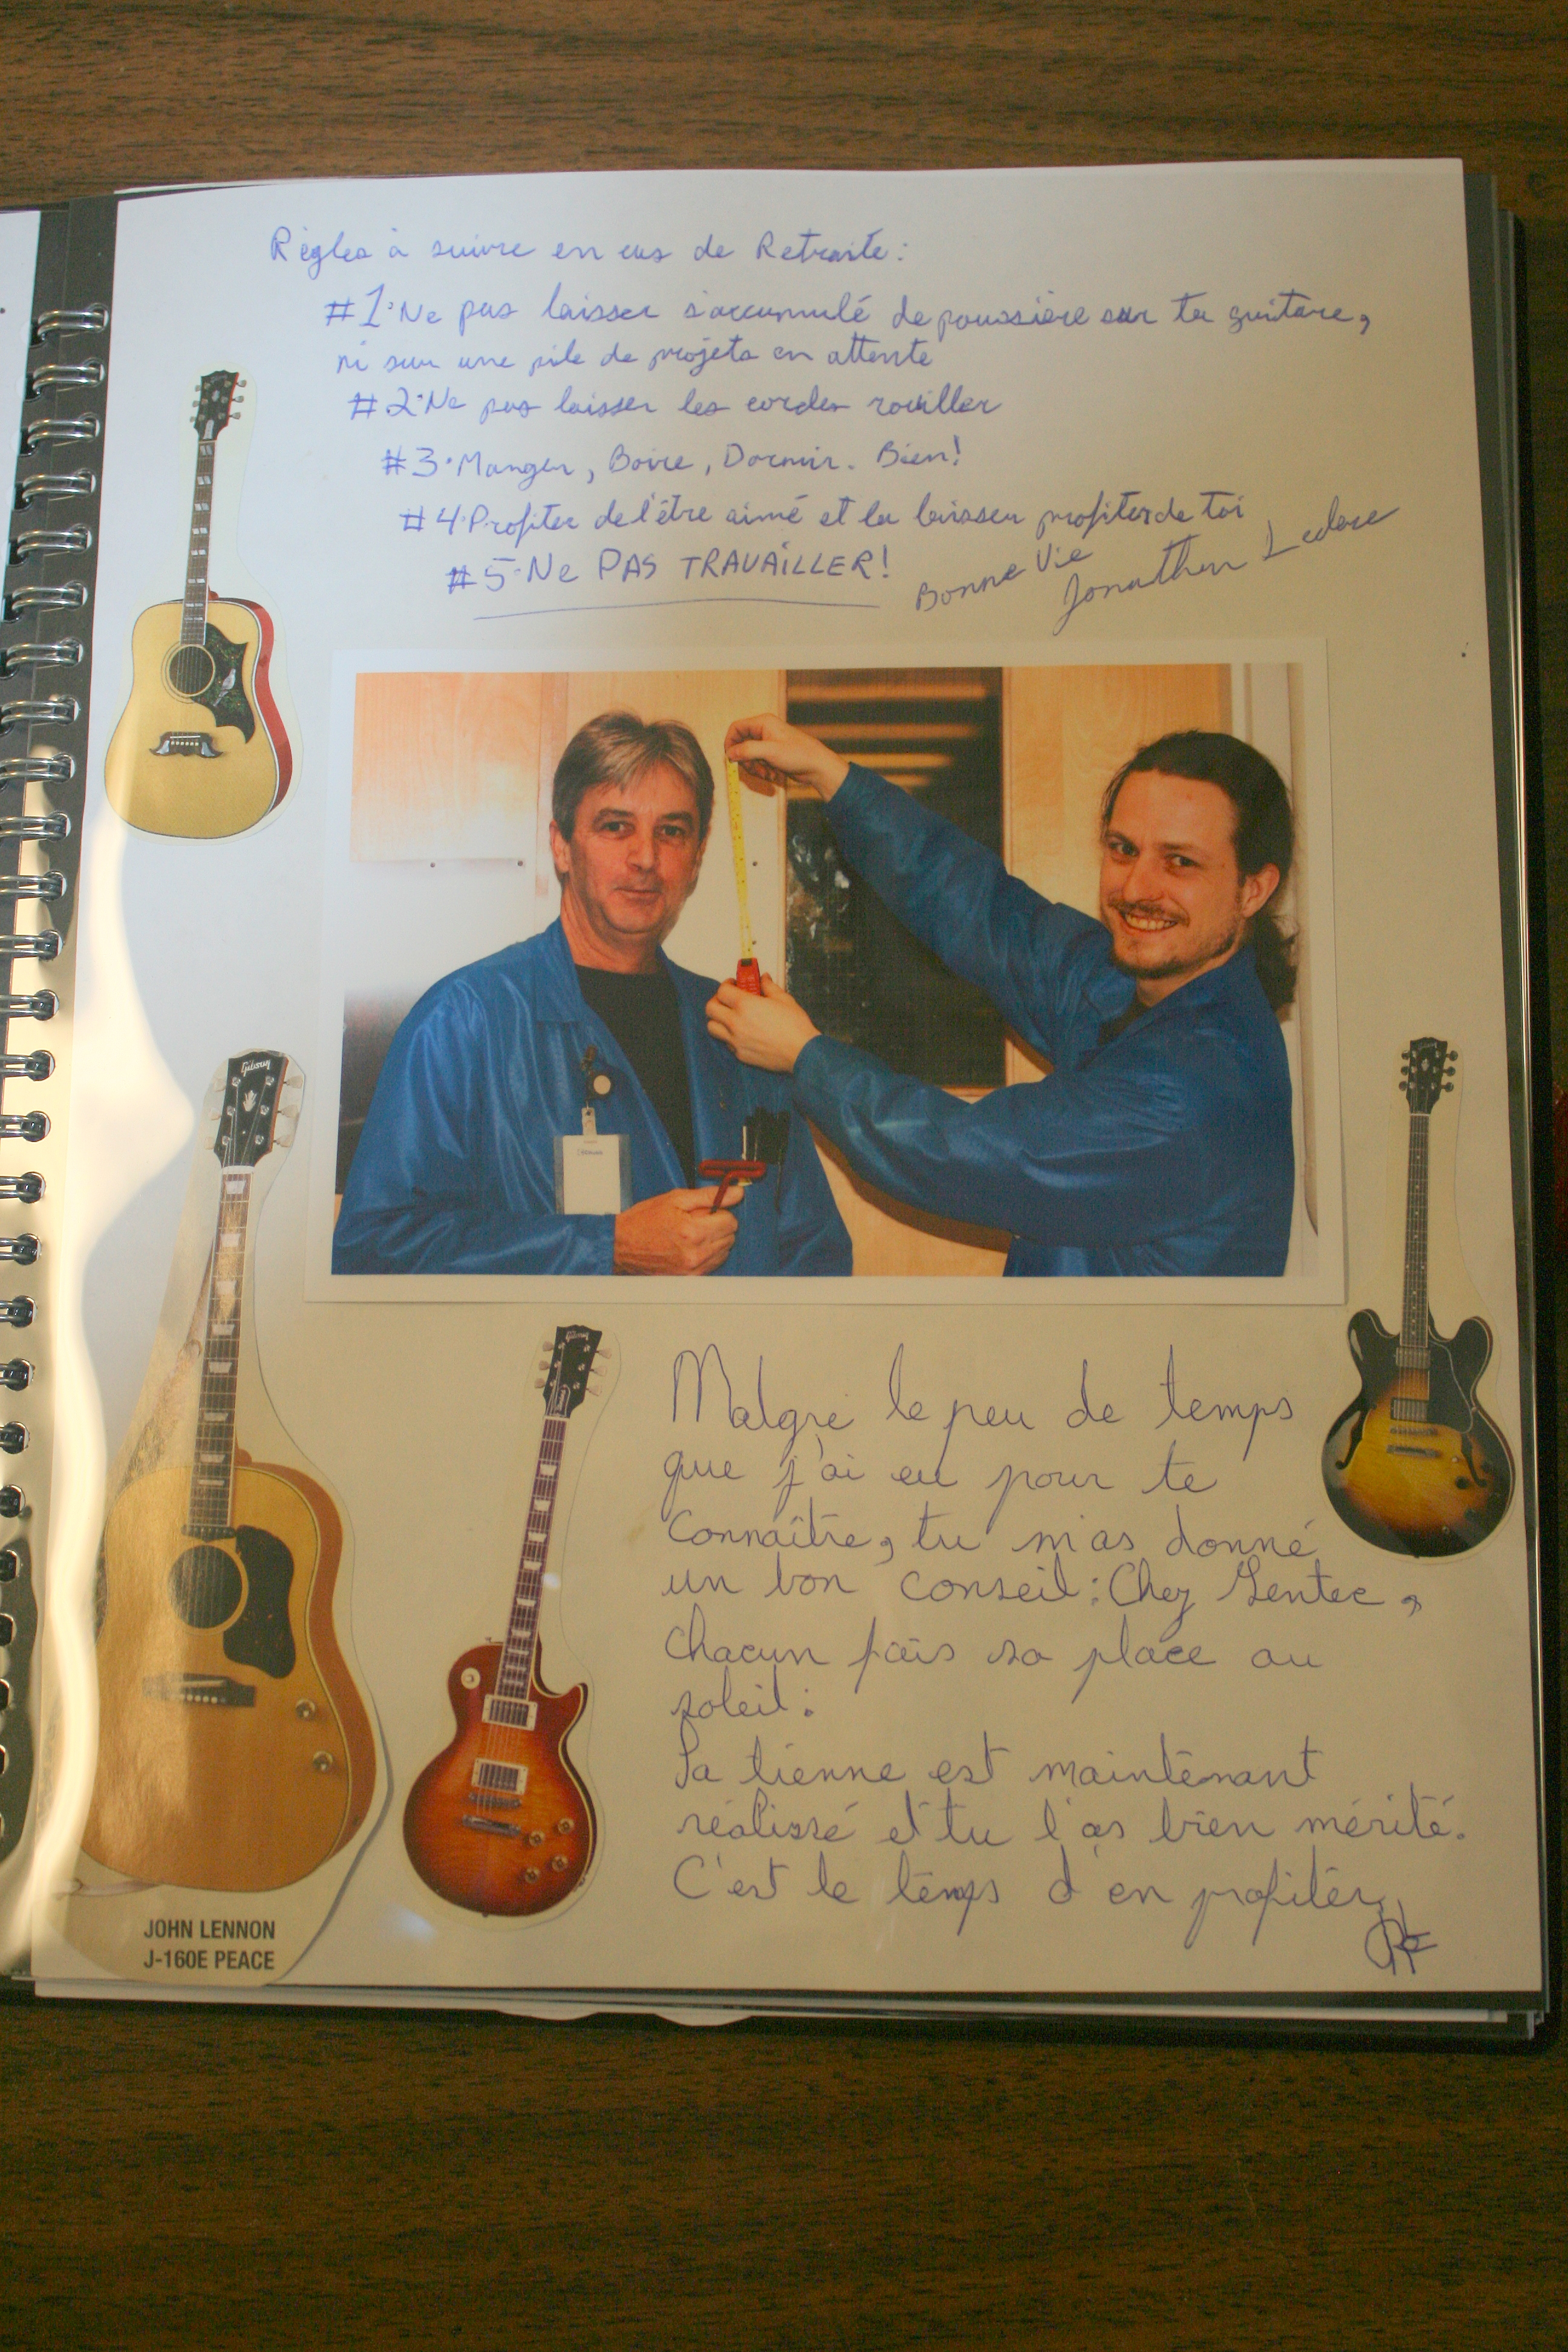 Règles à suivre en cas de Retraite:
#1·Ne pas laisser s'accumulé de poussière sur ta guitare,
ni sur une pile de projets en attente
#2·Ne pas laisser les cordes rouiller
#3·Manger, Boire, Dormir. Bien!
#4·Profiter de l'être aimé et la laisser profiter de toi
#5·Ne PAS TRAVAILLER!
Bonne Vie
Jonathan Leclerc
Gibson
Gibson
Malgré le peu de temps
que j'ai eu pour te
connaître, tu m'as donné
un bon conseil: Chez Gentec,
chacun fais sa place au
soleil:
La tienne est maintenant
réalissé et tu l'as bien mérité.
C'est le temps d'en profiter
JOHN LENNON
J-160E PEACE